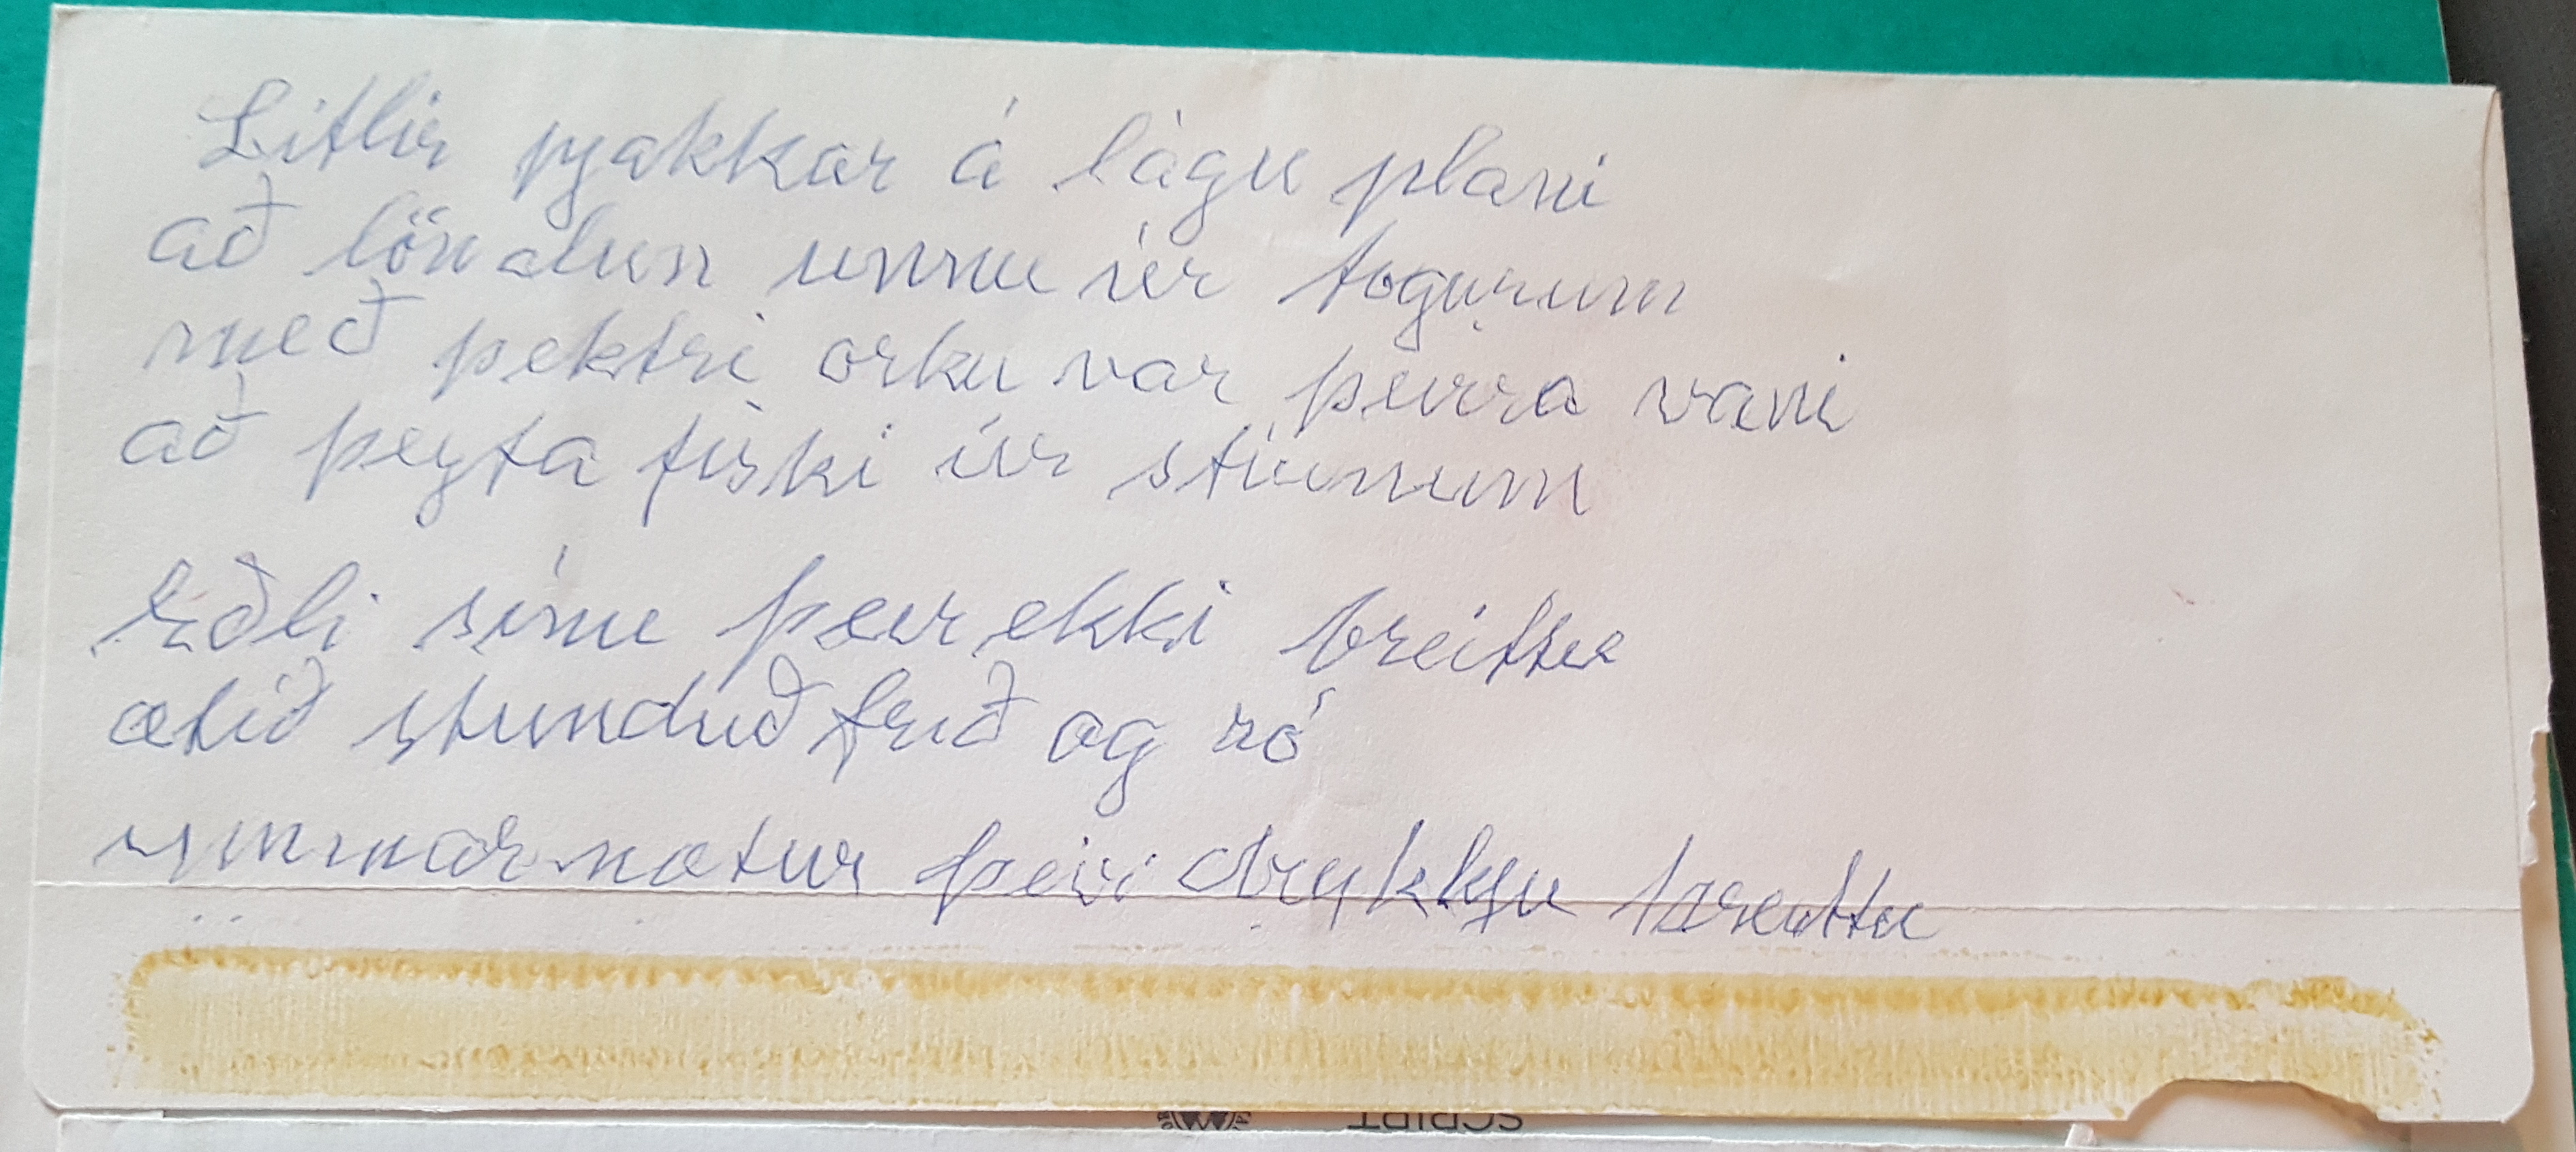 Litlir pjakkar á lágu plani
að löndun unnu úr togurum
með þekktri orku var þeirra vani
að þeyta fiski úr stíunum
Eðli sínu þeir ekki breittu
ætíð stunduð frið og ró
sumarnætur þeir drykkju þreyttu
SCRIPT